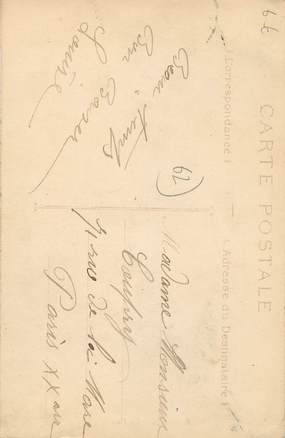 66
CARTE POSTALE
(Correspondance)
(Adresse du Destinataire)
Beau temps
Bon
Baiser
Louise
62)
Madame Monsieur
Coupry
rue de la Mare
Paris XX